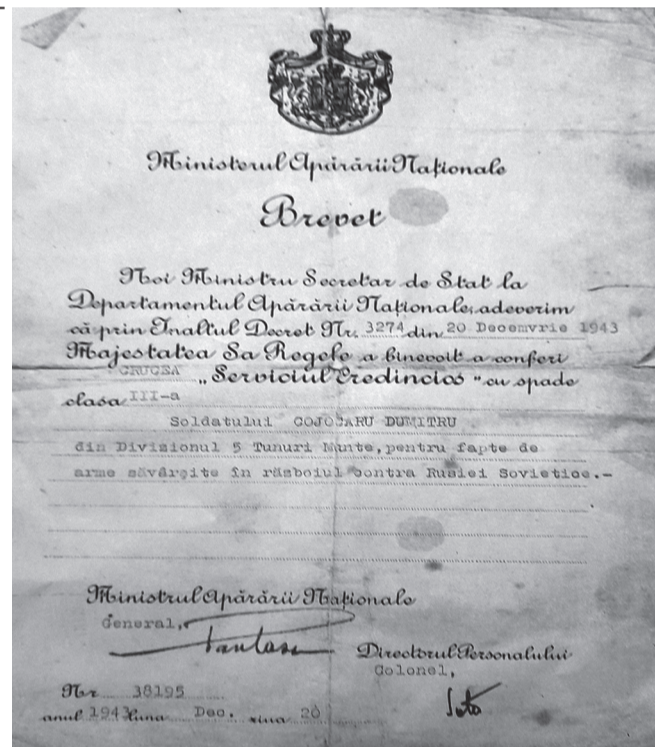 Ministerul Apărării Naționale
Brevet
Noi Ministru Secretar de Stat la
Departamentul Apărării Naționale, adeverim
că prin Înaltul Decret Nr. 3274 din 20 Decemvrie 1943
Majestatea Sa Regele a binevoit a conferi
CRUCEA „Serviciul Credincios" cu spade
clasa III-a
Soldatului COJOCARU DUMITRU
din Divizionul 5 Tunuri Munte, pentru fapte de
arme săvârșite în răsboiul contra Rusiei Sovietice.-
Ministrul Apărării Naționale
General,
Directorul Personalului
Colonel,
Nr. 38195
anul 1943 luna Dec. ziua 20